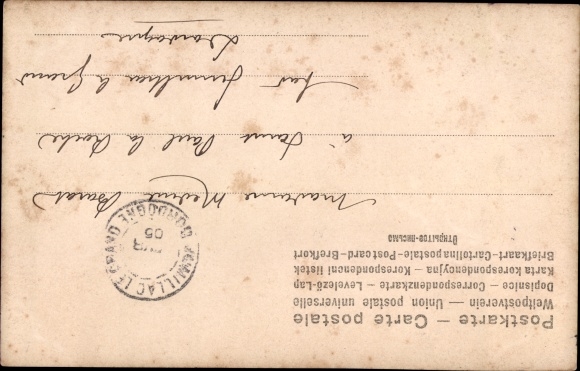 Postkarte — Carte postale
Weltpostverein — Union postale universelle
Dopisnice - Correspondenzkarte - Levelező-Lap
Karta korespondencyjna - Korespondencni listek
Briefkaart - Cartolina postale - Postcard - Brefkort
Открытое письмо
JUMILLAC LE GRAND
DORDOGNE
05
Madame
à Saint Paul la Roche
par Jumilhac le Grand
Dordogne